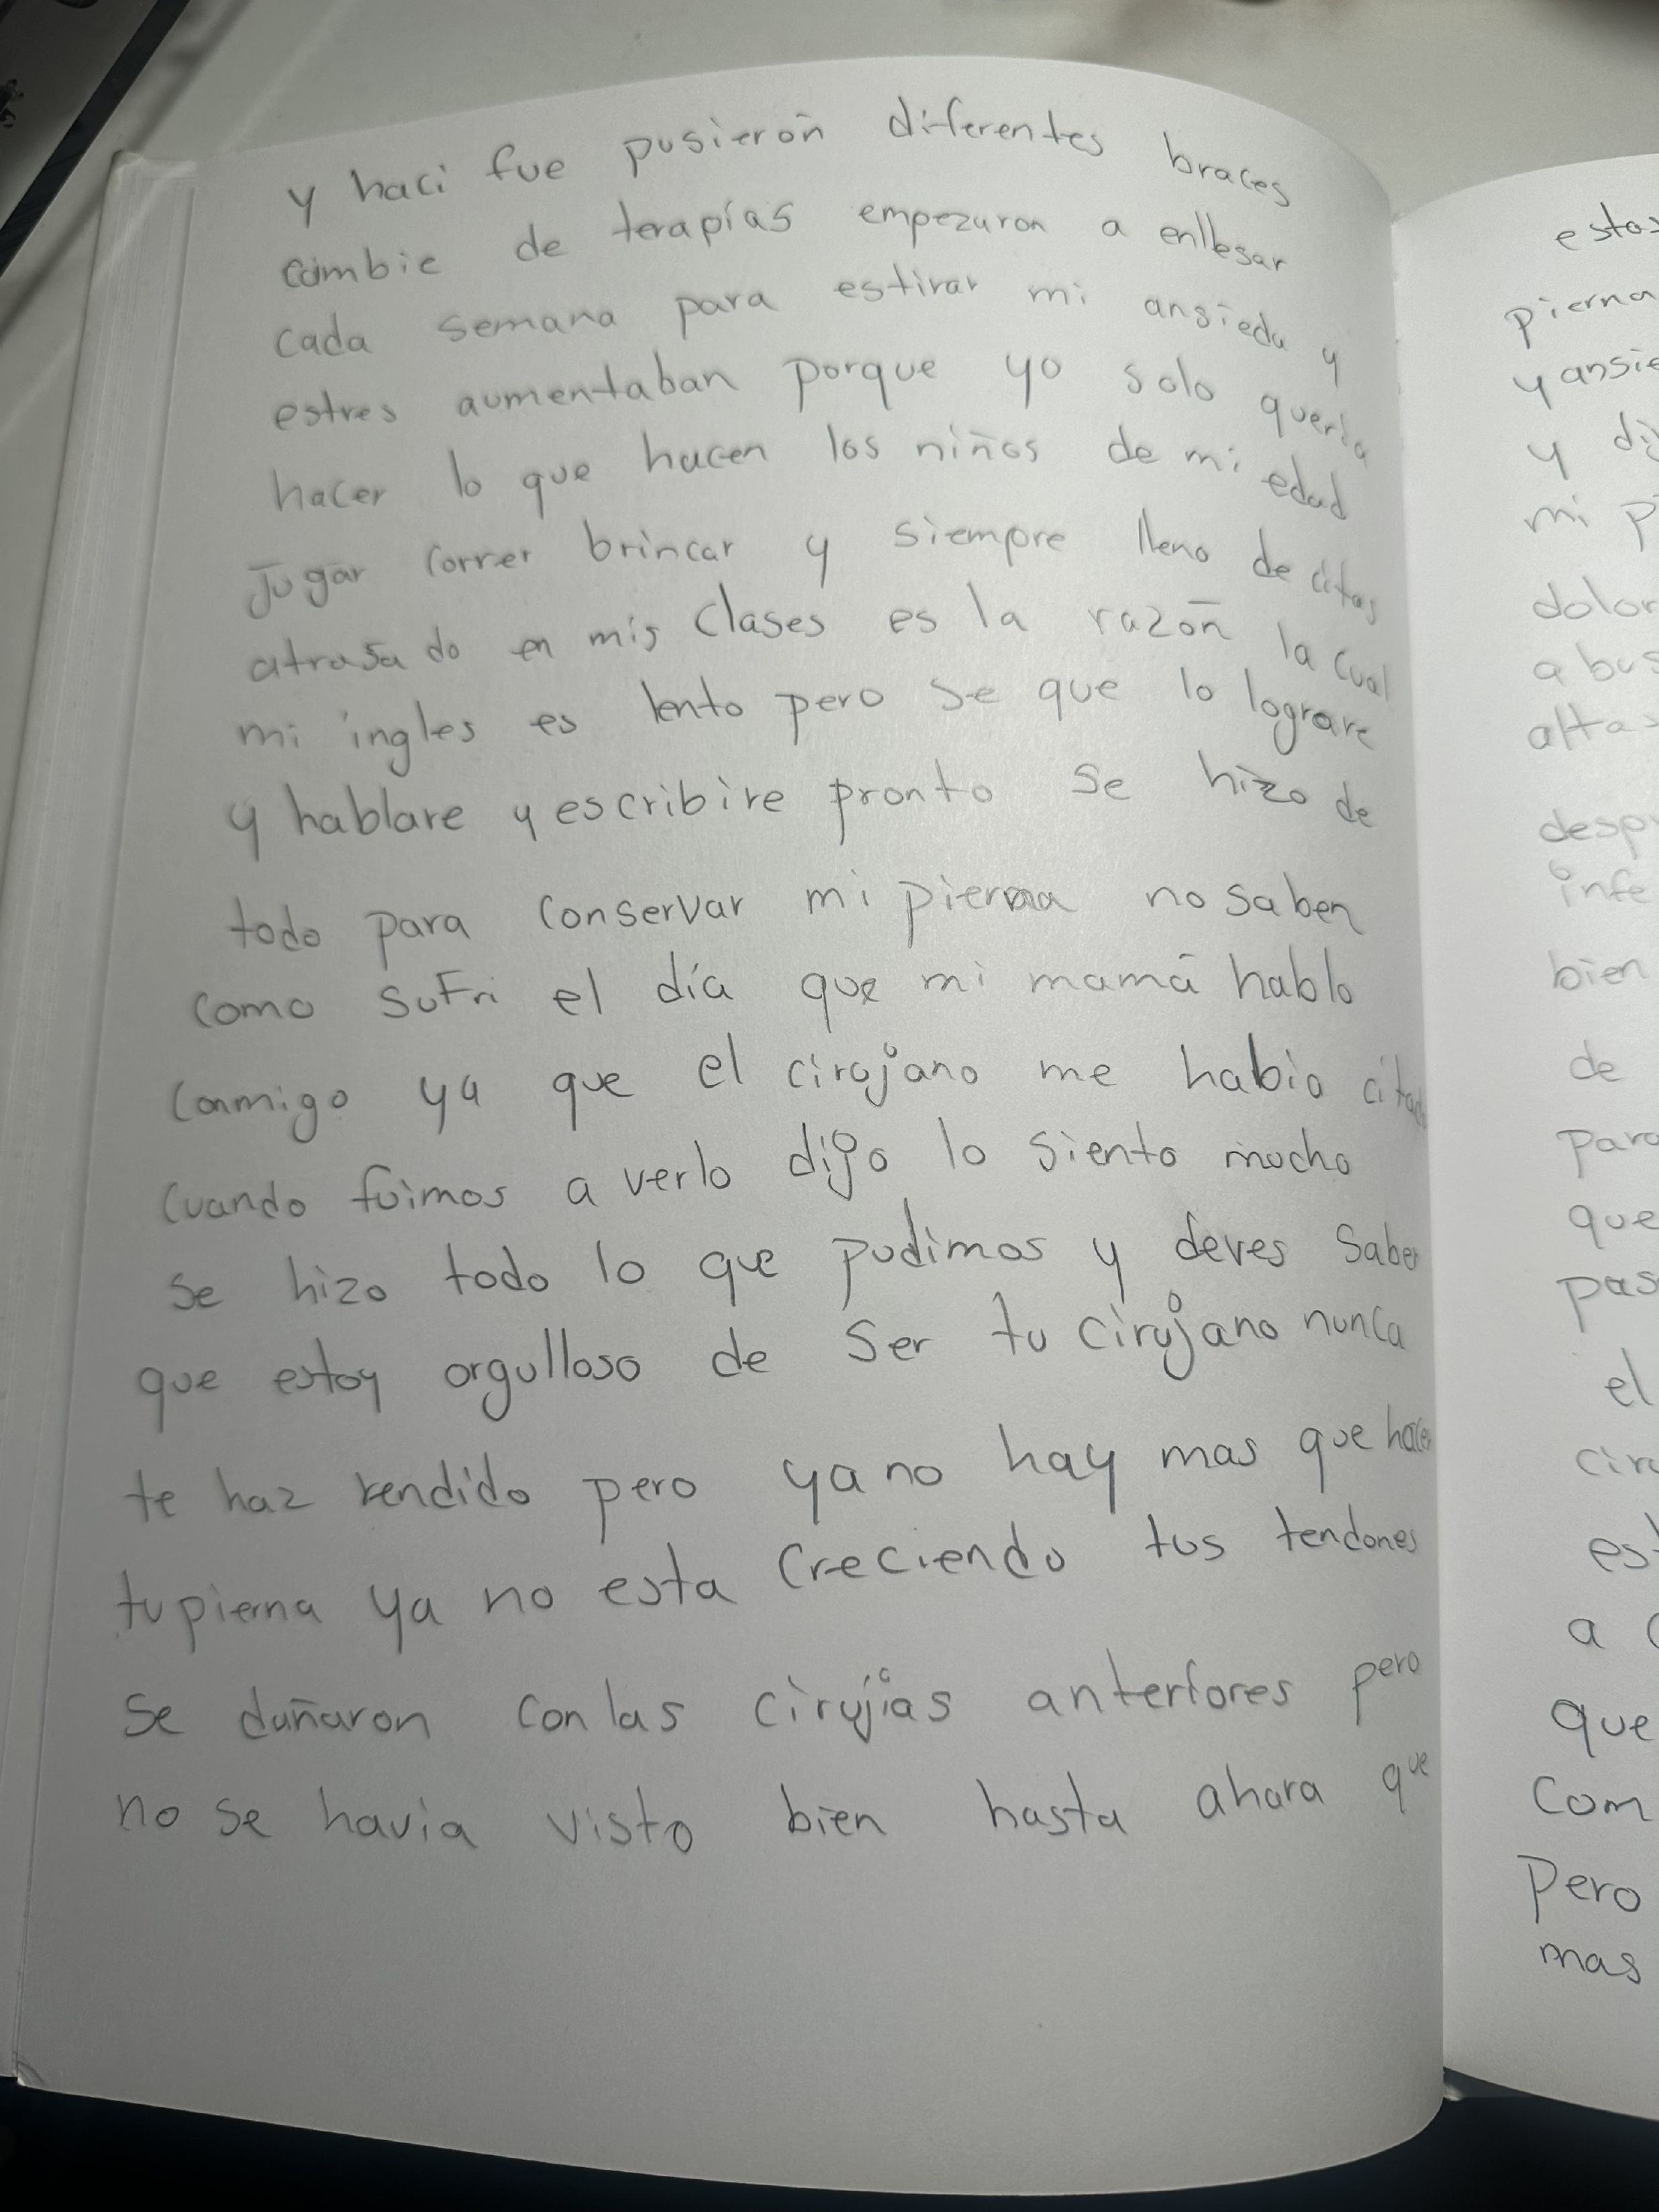 y haci fue pusierōn diferentes braces
cambie de terapías empezaron a enllesar
cada semana para estirar mi ansieda y
estres aumentaban porque yo solo queria
hacer lo que hacen los niños de mi edad
Jugar correr brincar y siempre lleno de citas
atrasado en mis clases es la razōn la cual
mi ingles es lento pero se que lo lograre
y hablare y escribire pronto se hizo de
todo para conservar mi pierna no saben
como sufri el día que mi mamá hablo
conmigo ya que el cirujano me habia citado
cuando fuimos a verlo dijo lo siento mucho
se hizo todo lo que pudimos y deves saber
que estoy orgulloso de ser tu cirujano nunca
te haz rendido pero ya no hay mas que hacer
tu pierna ya no esta creciendo tus tendones
se dañaron con las cirujias anteriores pero
no se havia visto bien hasta ahora que
estas
pierna
y ansie
y di
mi p
dolor
a bus
altas
desp
infe
bien
de
para
que
pas
el
ciru
est
a
que
Com
Pero
mas